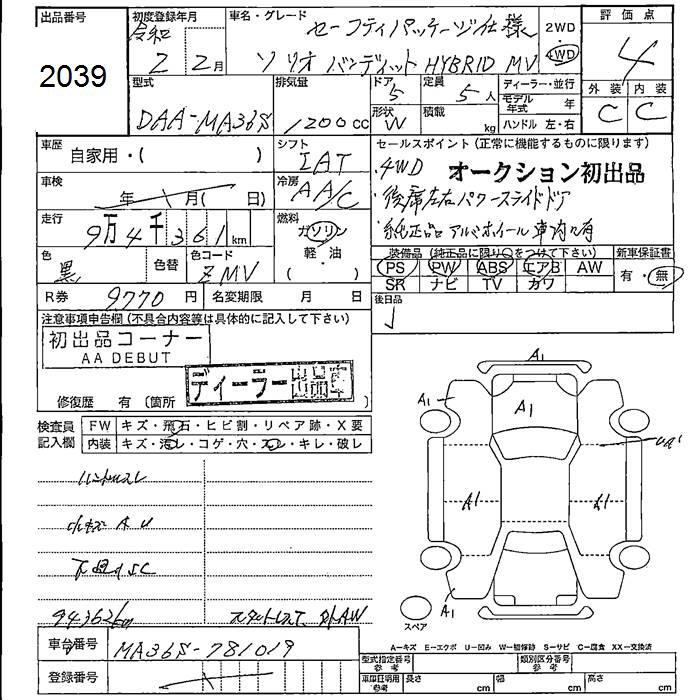 出品番号
2039
初度登録年月
令和
2 2月
車名・グレード
セーフティパッケージ仕様
ソリオ バンディット HYBRID MV
2WD
4WD
評価点
4
外装 内装
C C
型式
DAA-MA36S
排気量
1200cc
ドア
5
形状
W
定員
5人
積載
kg
ディーラー・並行
モデル年式 年
ハンドル 左・右
車歴
自家用・( )
シフト
IAT
車検
年 月( 日)
冷房
AA/C
走行
9万4千361km
燃料
ガソリン
軽・油
・( )
色
黒
色替
色コード
ZMV
R券 9770円
名変期限 月 日
セールスポイント (正常に機能するものに限ります)
・4WD
オークション初出品
・後席左右パワースライドドア
・純正品アルミホイール車内に有
装備品 (純正品に限り○をつけて下さい)
PS PW ABS エアB AW
SR ナビ TV カワ
新車保証書
有・無
後日品
注意事項申告欄 (不具合内容等は具体的に記入して下さい)
初出品コーナー
AA DEBUT
ディーラー出品車
修復歴 有 〔箇所 〕
検査員記入欄
FW キズ・飛石・ヒビ割・リペア跡・X要
内装 キズ・汚レ・コゲ・穴・スレ・キレ・破レ
ハンドルスレ
小キズ A U
下回りSC
94362km
スタットレス 外AW
車台番号
MA36S-781019
登録番号
A1
A1
A1
A1
A1
A1
スペア
A=キズ E=エクボ U=凹み W=補修跡 S=サビ C=腐食 XX=交換済
型式指定番号 参考
類別区分番号 参考
車庫証明用 参考
長さ cm
幅 cm
高さ cm